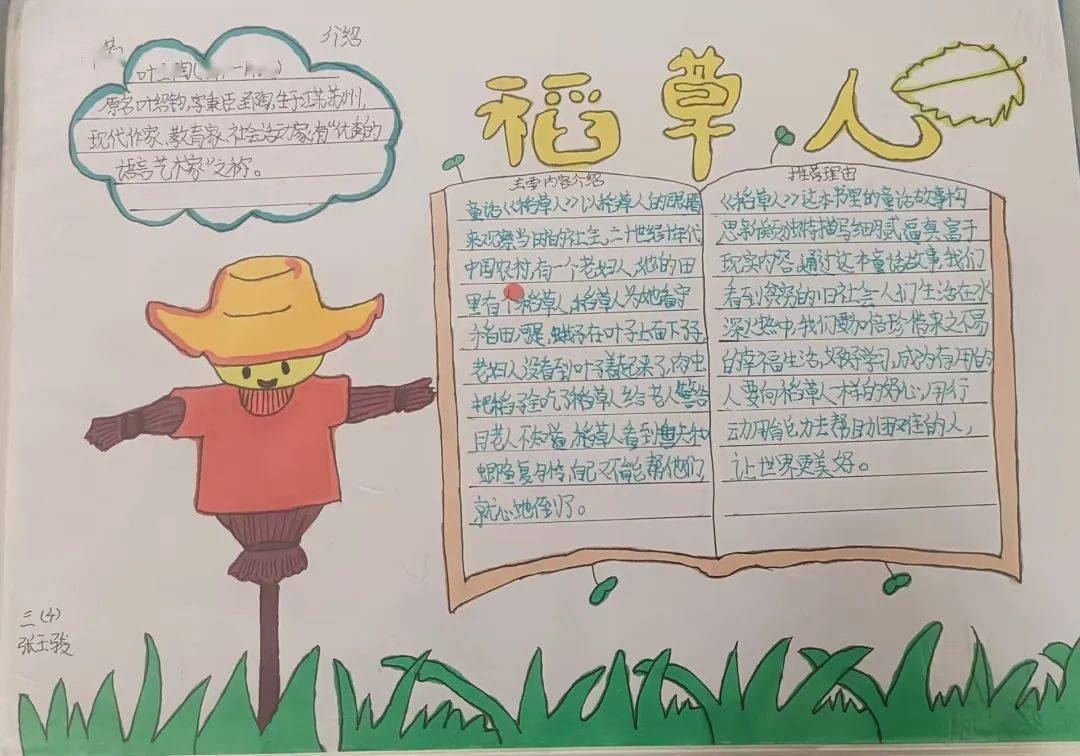 介绍
原名叶绍钧,字秉臣,圣陶,生于江苏苏州,
现代作家、教育家、社会活动家,有“优秀的
语言艺术家”之称。
稻草人
主要内容介绍
童话《稻草人》以稻草人的眼睛
来观察当时的社会,二十世纪年代
中国农村,有一个老妇人,她的田
里有个稻草人,稻草人为她看守
稻田,可是,蛾子在叶子上面下了子,
老妇人没看到叶子卷起来了,肉虫
把稻子全吃了稻草人给老人警告
老人不知道,稻草人看到和
自己不能帮他们,
就心地倒了。
推荐理由
《稻草人》这本书里的童话故事构
思新颖独特描写细腻逼真富于
现实内容,通过这本童话故事,我们
看到贫穷的旧社会人们生活在水
深火热中,我们要加倍珍惜来之不易
的幸福生活,好好学习,成为有用的
人要向稻草人一样的好心,用行
动用自己力去帮助困难的人,
让世界更美好。
三(4)
张王骏